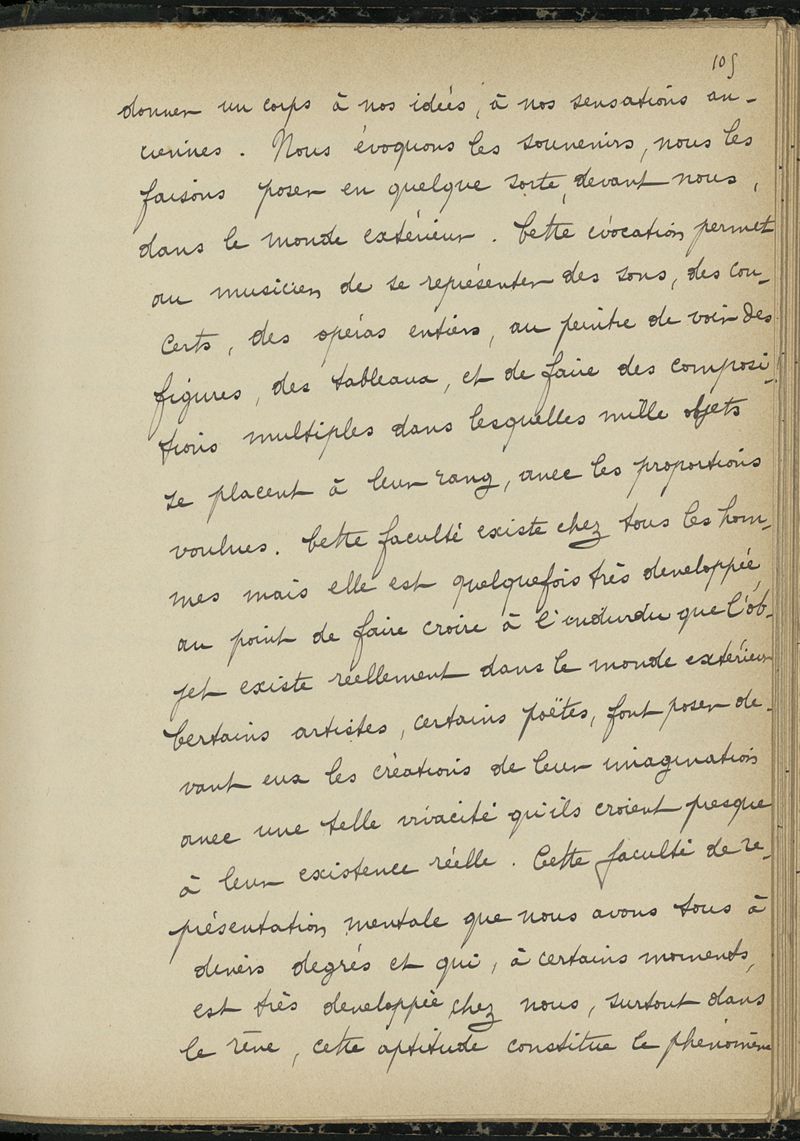 105
donner un corps à nos idées, à nos sensations an-
ciennes. Nous évoquons les souvenirs, nous les
faisons poser en quelque sorte, devant nous,
dans le monde extérieur. Cette évocation permet
au musicien de se représenter des sons, des con-
certs, des opéras entiers, au peintre de voir des
figures, des tableaux, et de faire des composi-
tions multiples dans lesquelles mille objets
se placent à leur rang, avec les proportions
voulues. Cette faculté existe chez tous les hom-
mes mais elle est quelquefois très developpée,
au point de faire croire à l'individu que l'ob-
jet existe réellement dans le monde extérieur
Certains artistes, certains poëtes, font poser de-
vant eux les créations de leur imagination
avec une telle vivacité qu'ils croient presque
à leur existence réelle. Cette faculté de re-
présentation mentale que nous avons tous à
divers degrés et qui, à certains moments,
est très developpée chez nous, surtout dans
le rêve, cette aptitude constitue le phénomène